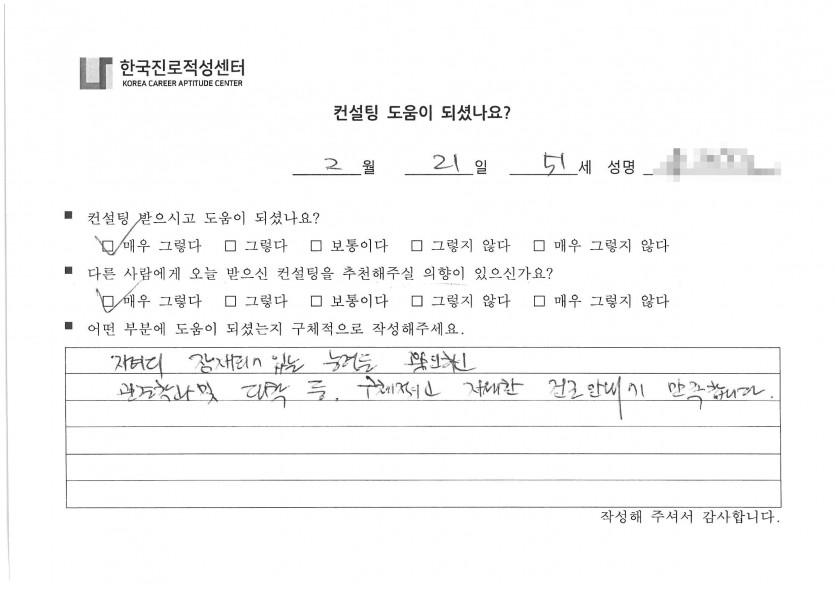 한국진로적성센터
KOREA CAREER APTITUDE CENTER
컨설팅 도움이 되셨나요?
2 월 21 일 51 세 성명
■ 컨설팅 받으시고 도움이 되셨나요?
□ 매우 그렇다 □ 그렇다 □ 보통이다 □ 그렇지 않다 □ 매우 그렇지 않다
■ 다른 사람에게 오늘 받으신 컨설팅을 추천해주실 의향이 있으신가요?
□ 매우 그렇다 □ 그렇다 □ 보통이다 □ 그렇지 않다 □ 매우 그렇지 않다
■ 어떤 부분에 도움이 되셨는지 구체적으로 작성해주세요.
있는
및 대학 등. 자세한 진로안내가 만족합니다.
작성해 주셔서 감사합니다.